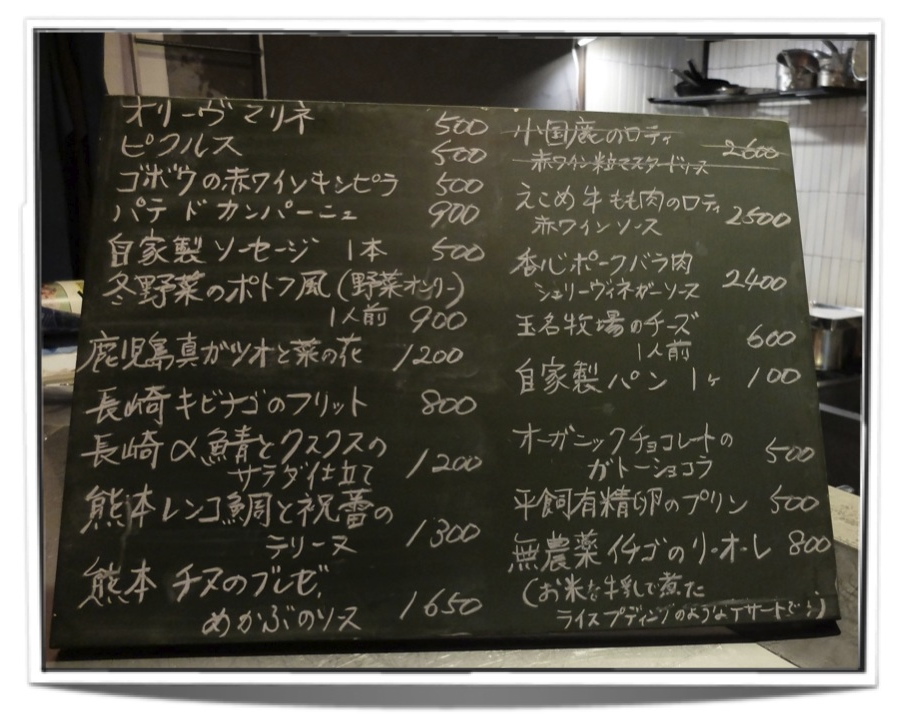 オリーヴマリネ 500
ピクルス 500
ゴボウの赤ワインキンピラ 500
パテ ド カンパーニュ 900
自家製ソーセージ 1本 500
冬野菜のポトフ風(野菜オンリー)
1人前 900
鹿児島真ガツオと菜の花 1200
長崎キビナゴのフリット 800
長崎〆鯖とクスクスの
サラダ仕立て 1200
熊本レンコ鯛と祝蕾の
テリーヌ 1300
熊本 チヌのブレゼ
めかぶのソース 1650
小国鹿のロティ 2600
赤ワイン粒マスタードソース
えこめ牛もも肉のロティ 2500
赤ワインソース
香心ポークバラ肉
シェリーヴィネガーソース 2400
玉名牧場のチーズ 600
1人前
自家製パン 1ヶ 100
オーガニックチョコレートの
ガトーショコラ 500
平飼有精卵のプリン 500
無農薬イチゴのリ・オ・レ 800
(お米を牛乳で煮た
ライスプディングのようなデザートです)